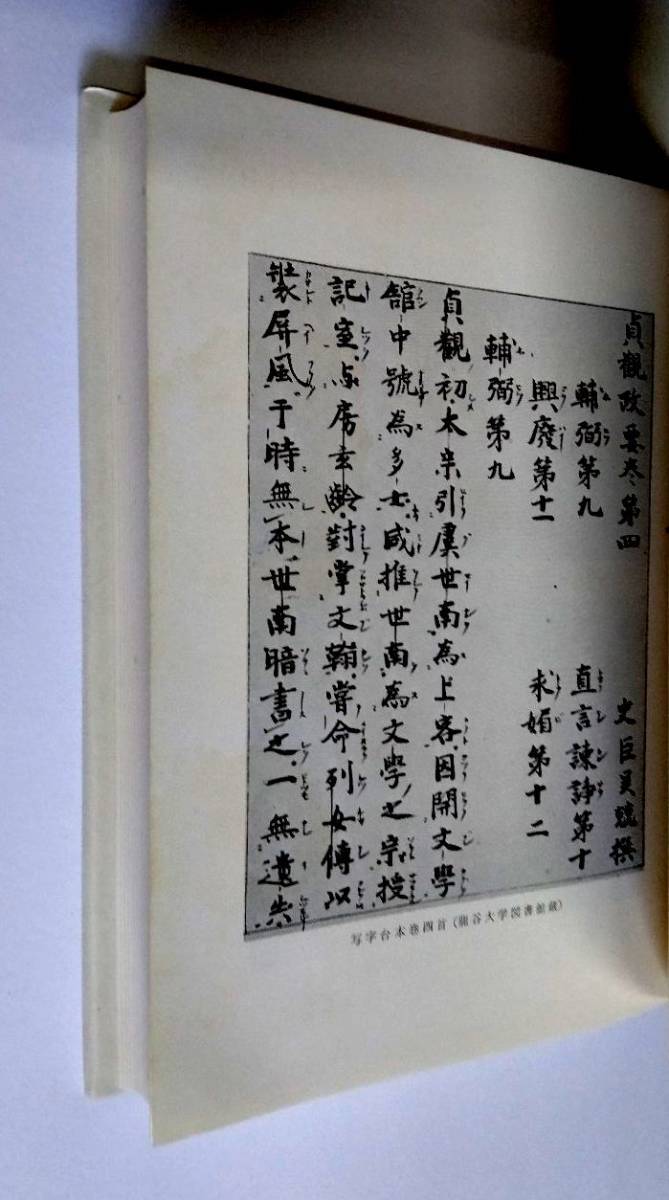 貞觀政要卷第四　史臣吳兢撰
輔弼第九　直言諫諍第十
興廢第十一　求媚第十二
輔弼第九
貞觀初太宗引虞世南為上客因開文學
舘中號為多士咸推世南為文學之宗授
記室与房玄齡對掌文翰甞命列女傳以
裝屏風于時無本世南暗書之一無遺失
写字台本巻四首(龍谷大学図書館蔵)